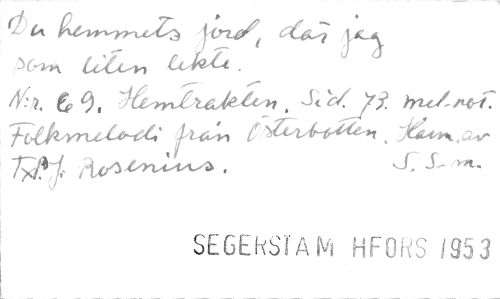 Du hemmets jord, där jag
som liten lekte.
N:r. 69. Hemtrakten. Sid. 73. mel-not.
Folkmelodi från Österbotten. Harm. av
T.P.J. Rosenius. S. S-m.
SEGERSTAM HFORS 1953